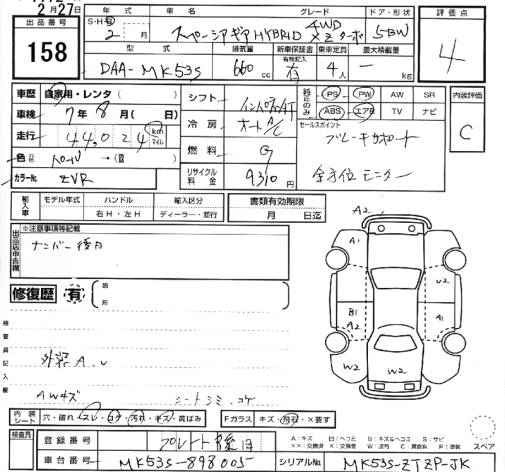 2月27日
出品番号 158
年式 グレード ドア・形状 評価点
S・H・R 2年 月 スペーシアギアHYBRID 4WD XZターボ 5BW 4
型式 排気量 新車保証書 有無記入 乗車定員 最大積載量
DAA-MK53S 660cc 有 4人 — kg
車歴 自家用・レンタ( )
車検 7年8月( 日)
走行 44,024 km マイル
色 元色 パール →(替 )
カラーNo. ZVR
シフト インパネAT
冷房 オートA/C
燃料 G
リサイクル料金 9310円
純正のみ PS PW AW SR
ABS エアB TV ナビ
内装評価 C
セールスポイント
ブレーキサポート
全方位モニター
輸入車 モデル年式 ハンドル 輸入区分
年 右H・左H ディーラー・並行
書類有効期限
月 日迄
出品店申告欄 ※注意事項等記載
ナンバー後日
修復歴 有 箇所
検査員記入欄
外装A.U
AWキズ シートシミ.コゲ
A2
A1
U2
B1
A2
A1
W2
W2
W2
内装シート 穴・破れ・スレ・コゲ・汚れ・キズ・黄ばみ
Fガラス キズ・飛石・×要す
A：キズ B：キズ&ヘコミ S：サビ
スペア
検査員 登録番号 プレート後日
車台番号 MK53S-898005 シリアルNo. MK53S-ZTZP-JK